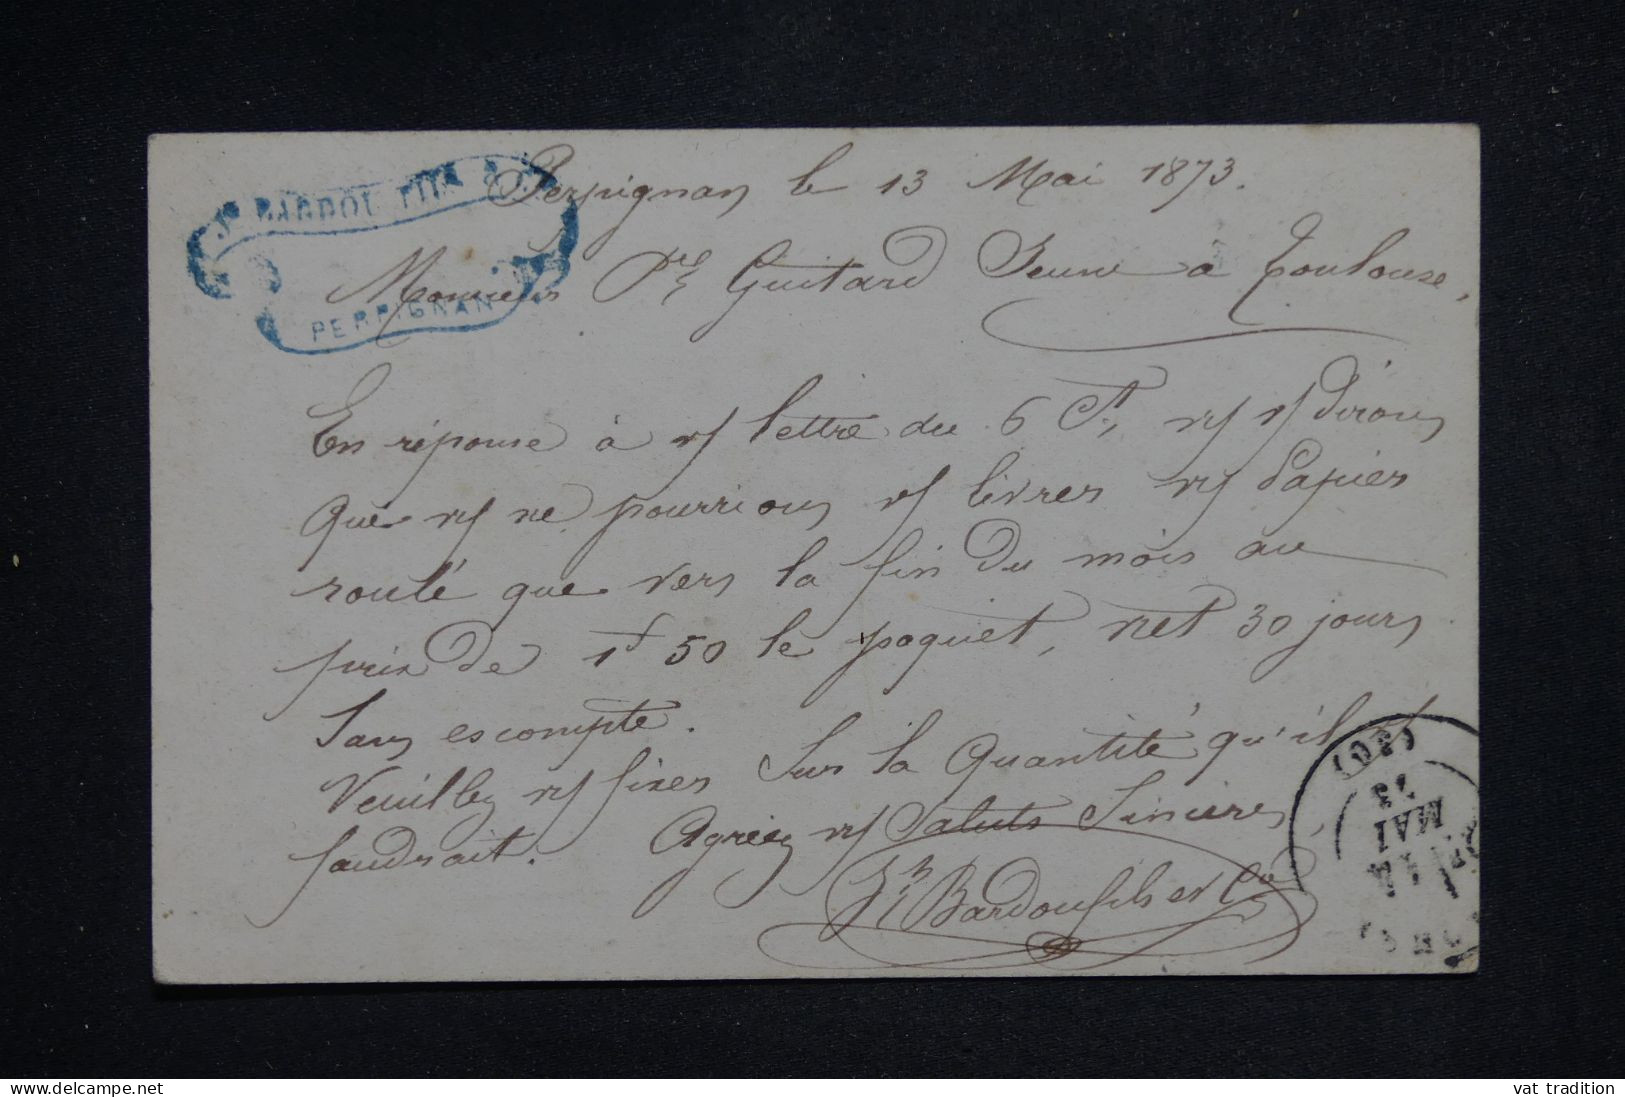 Jh BARDOU FILS &
PERPIGNAN
Perpignan le 13 Mai 1873.
Monsieur Pre Guitard Jeune a Toulouse,
En réponse à v/ lettre du 6 Ct, n/ v/ dirons
que n/ ne pourrions v/ livrer n/ Papier
roulé que vers la fin du mois au
prix de 1f 50 le paquet, net 30 jours
sans escompte.
Veuillez n/ fixer sur la quantité qu'il
faudrait. Agréez n/ Saluts Sincères,
Jh Bardou fils et Cie
MAI
73
delcampe.net
vat_tradition